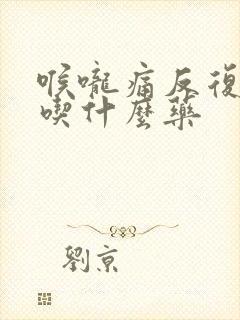 喉嚨痛反復
喫什麼藥
劉京